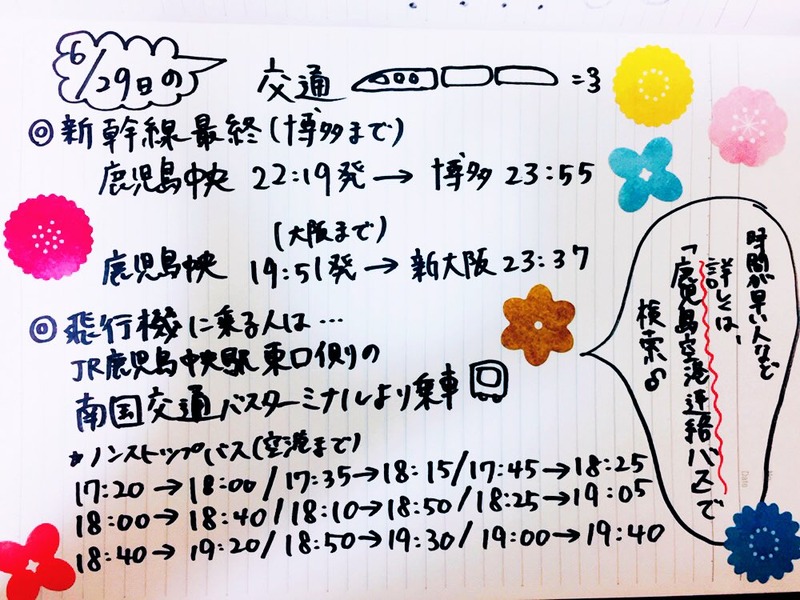 6/29日の 交通 =3
◎新幹線最終(博多まで)
鹿児島中央 22:19発→ 博多 23:55
(大阪まで)
鹿児島中央 19:51発→ 新大阪 23:37
◎飛行機に乗る人は…
JR鹿児島中央駅東口側の
南国交通バスターミナルより乗車
*ノンストップバス(空港まで)
17:20→18:00/17:35→18:15/17:45→18:25
18:00→18:40/18:10→18:50/18:25→19:05
18:40→19:20/18:50→19:30/19:00→19:40
時間が早い人など
詳しくは、
「鹿児島空港連絡バス」で
検索♪